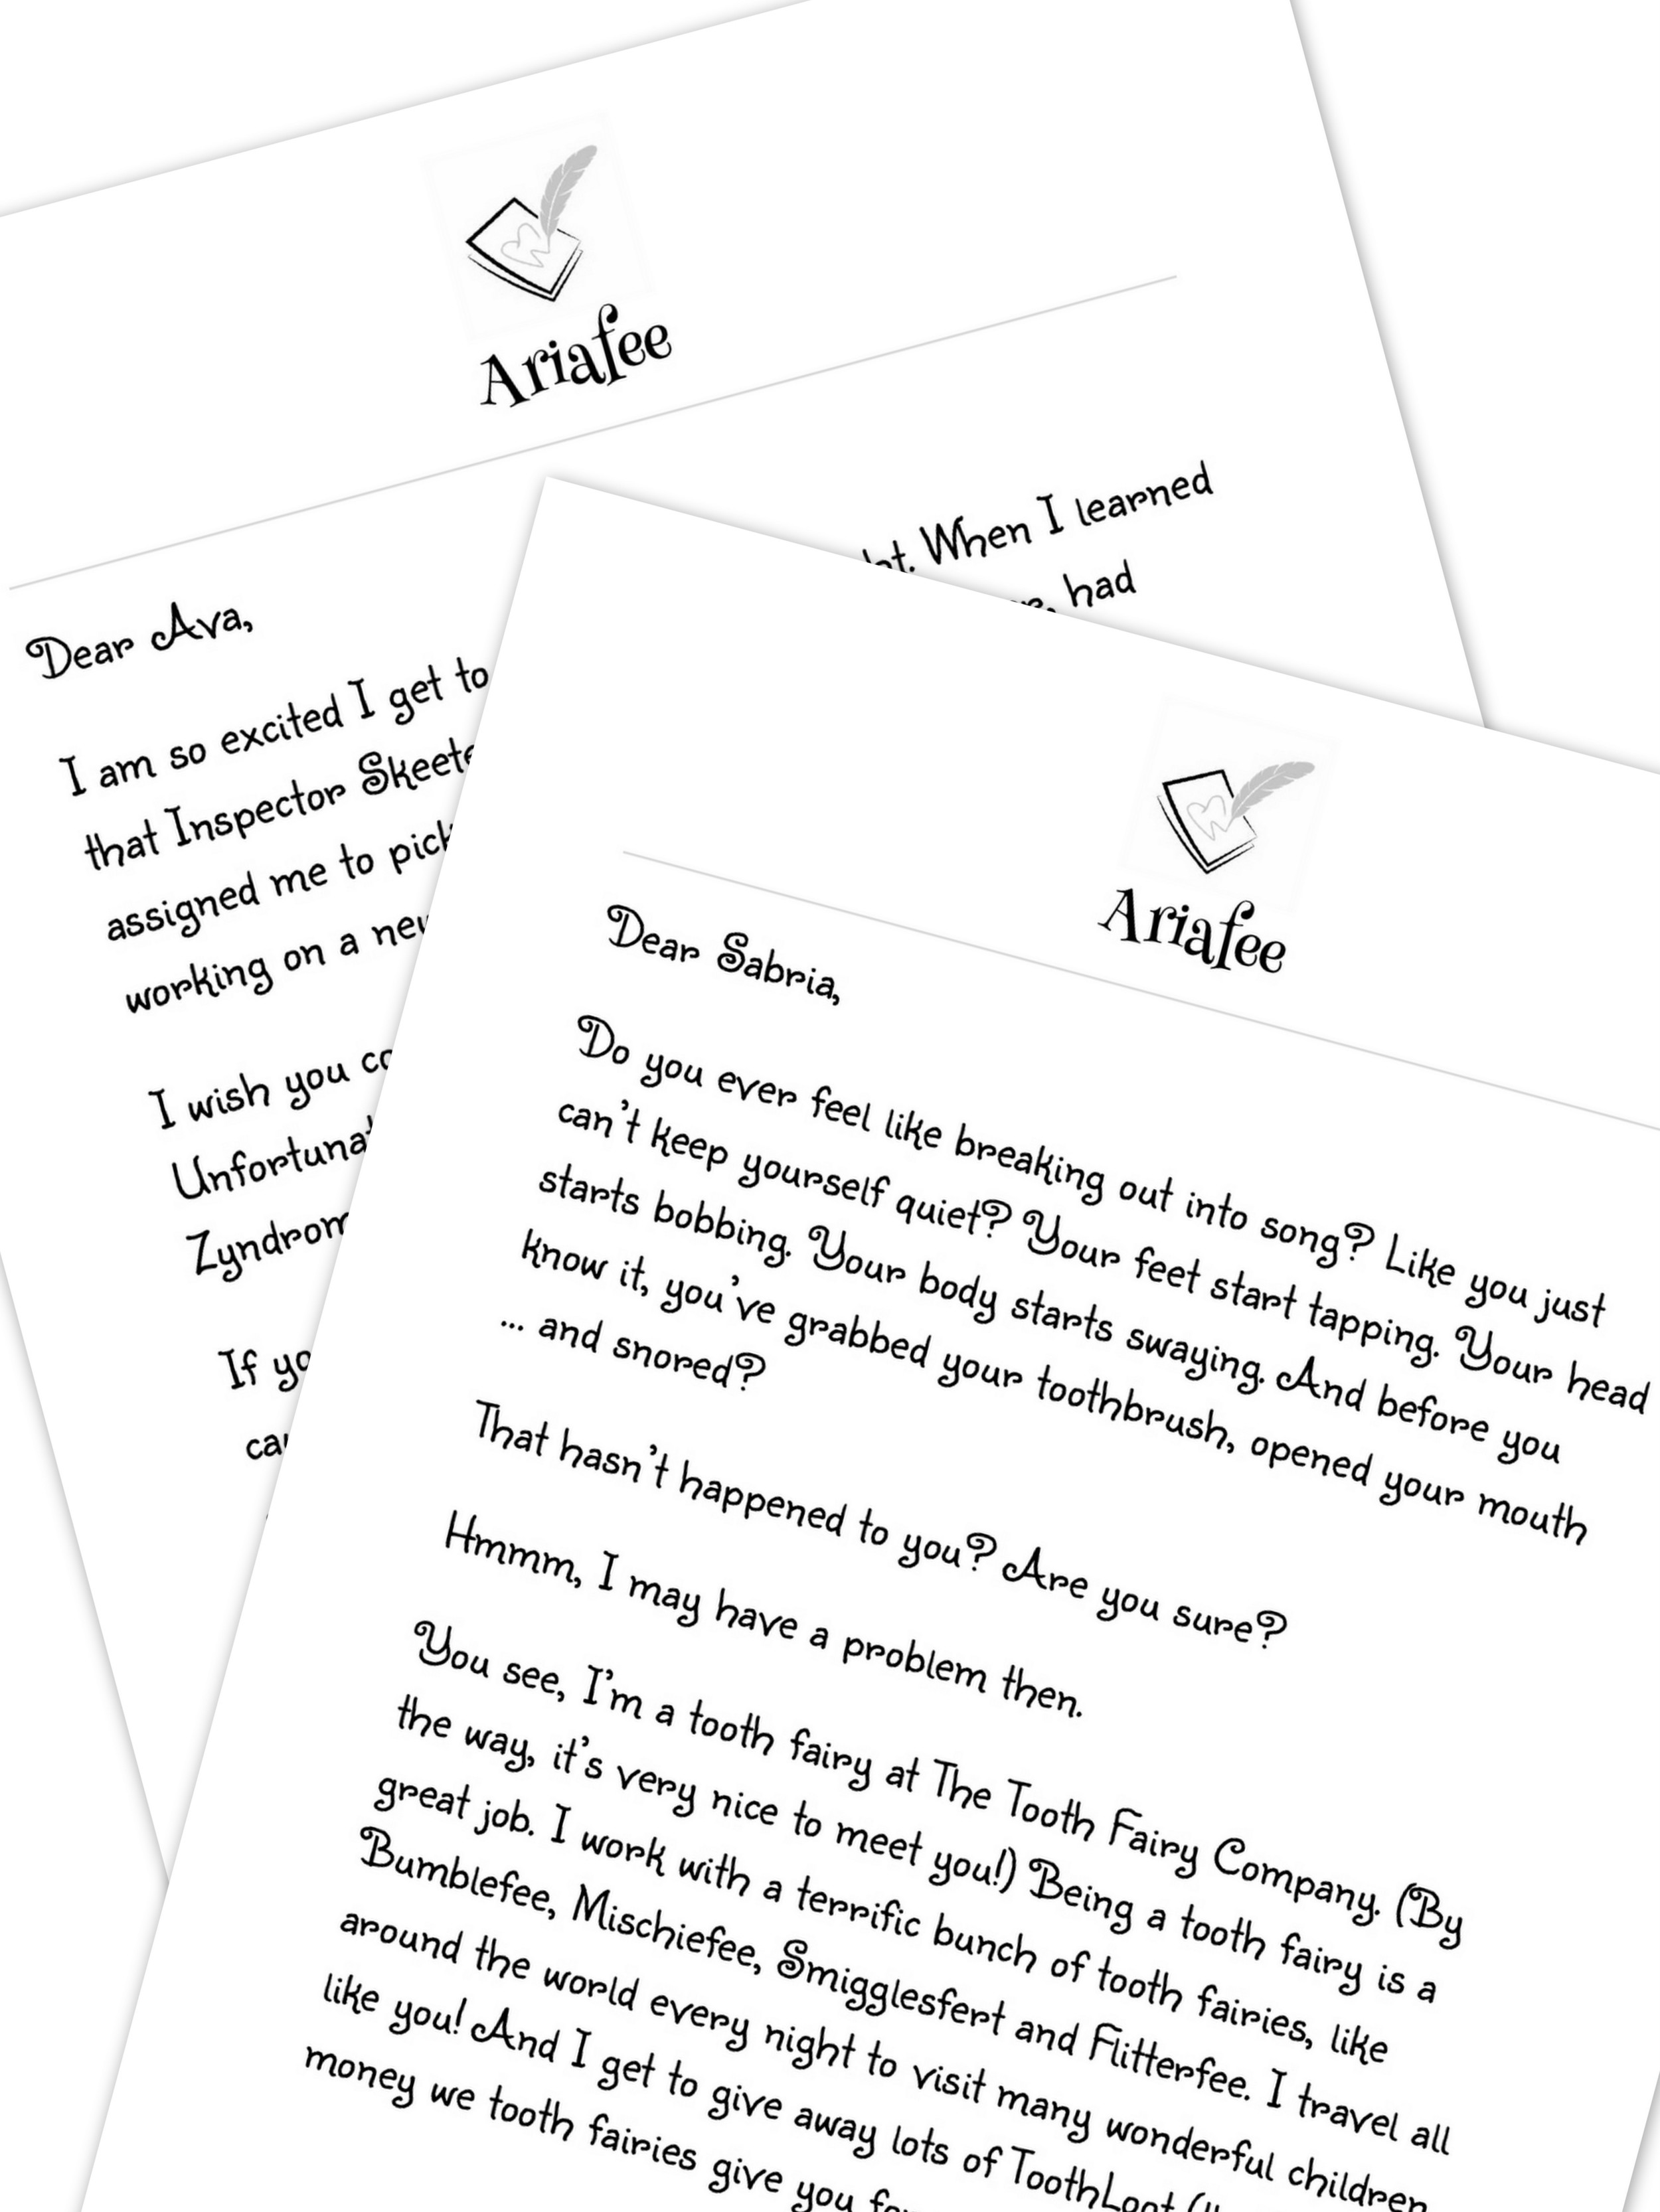 Ariafee
Dear Ava,
I am so excited I get to
. When I learned
that Inspector
had
assigned me to
working on a
I wish you
If
Ariafee
Dear Sabria,
Do you ever feel like breaking out into song? Like you just
can't keep yourself quiet? Your feet start tapping. Your head
starts bobbing. Your body starts swaying. And before you
know it, you've grabbed your toothbrush, opened your mouth
... and snored?
That hasn't happened to you? Are you sure?
Hmmm, I may have a problem then.
You see, I'm a tooth fairy at The Tooth Fairy Company. (By
the way, it's very nice to meet you!) Being a tooth fairy is a
great job. I work with a terrific bunch of tooth fairies, like
Bumblefee, Mischiefee, Smigglesfert and Flitterfee. I travel all
around the world every night to visit many wonderful children
like you! And I get to give away lots of ToothLoot
money we tooth fairies give you